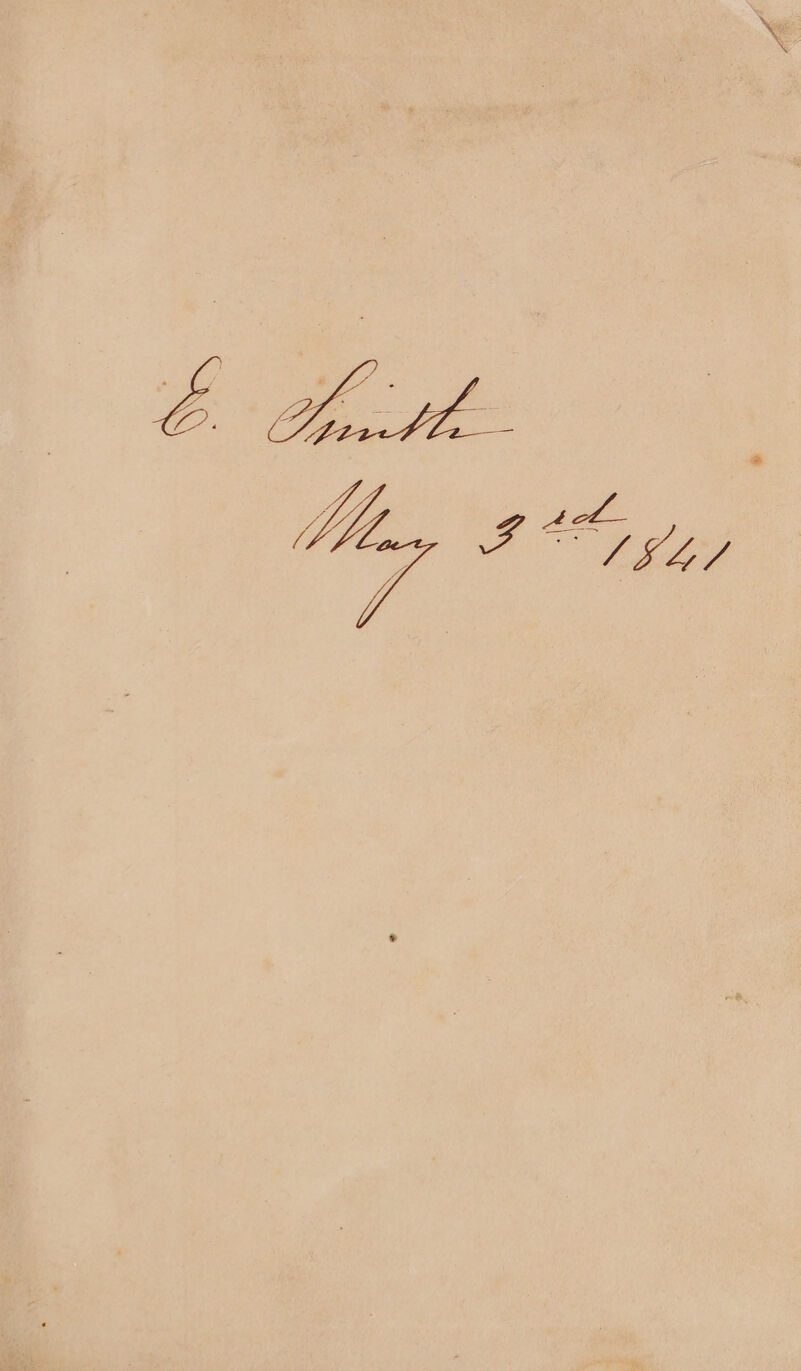 E. Smith
May 3rd 1841